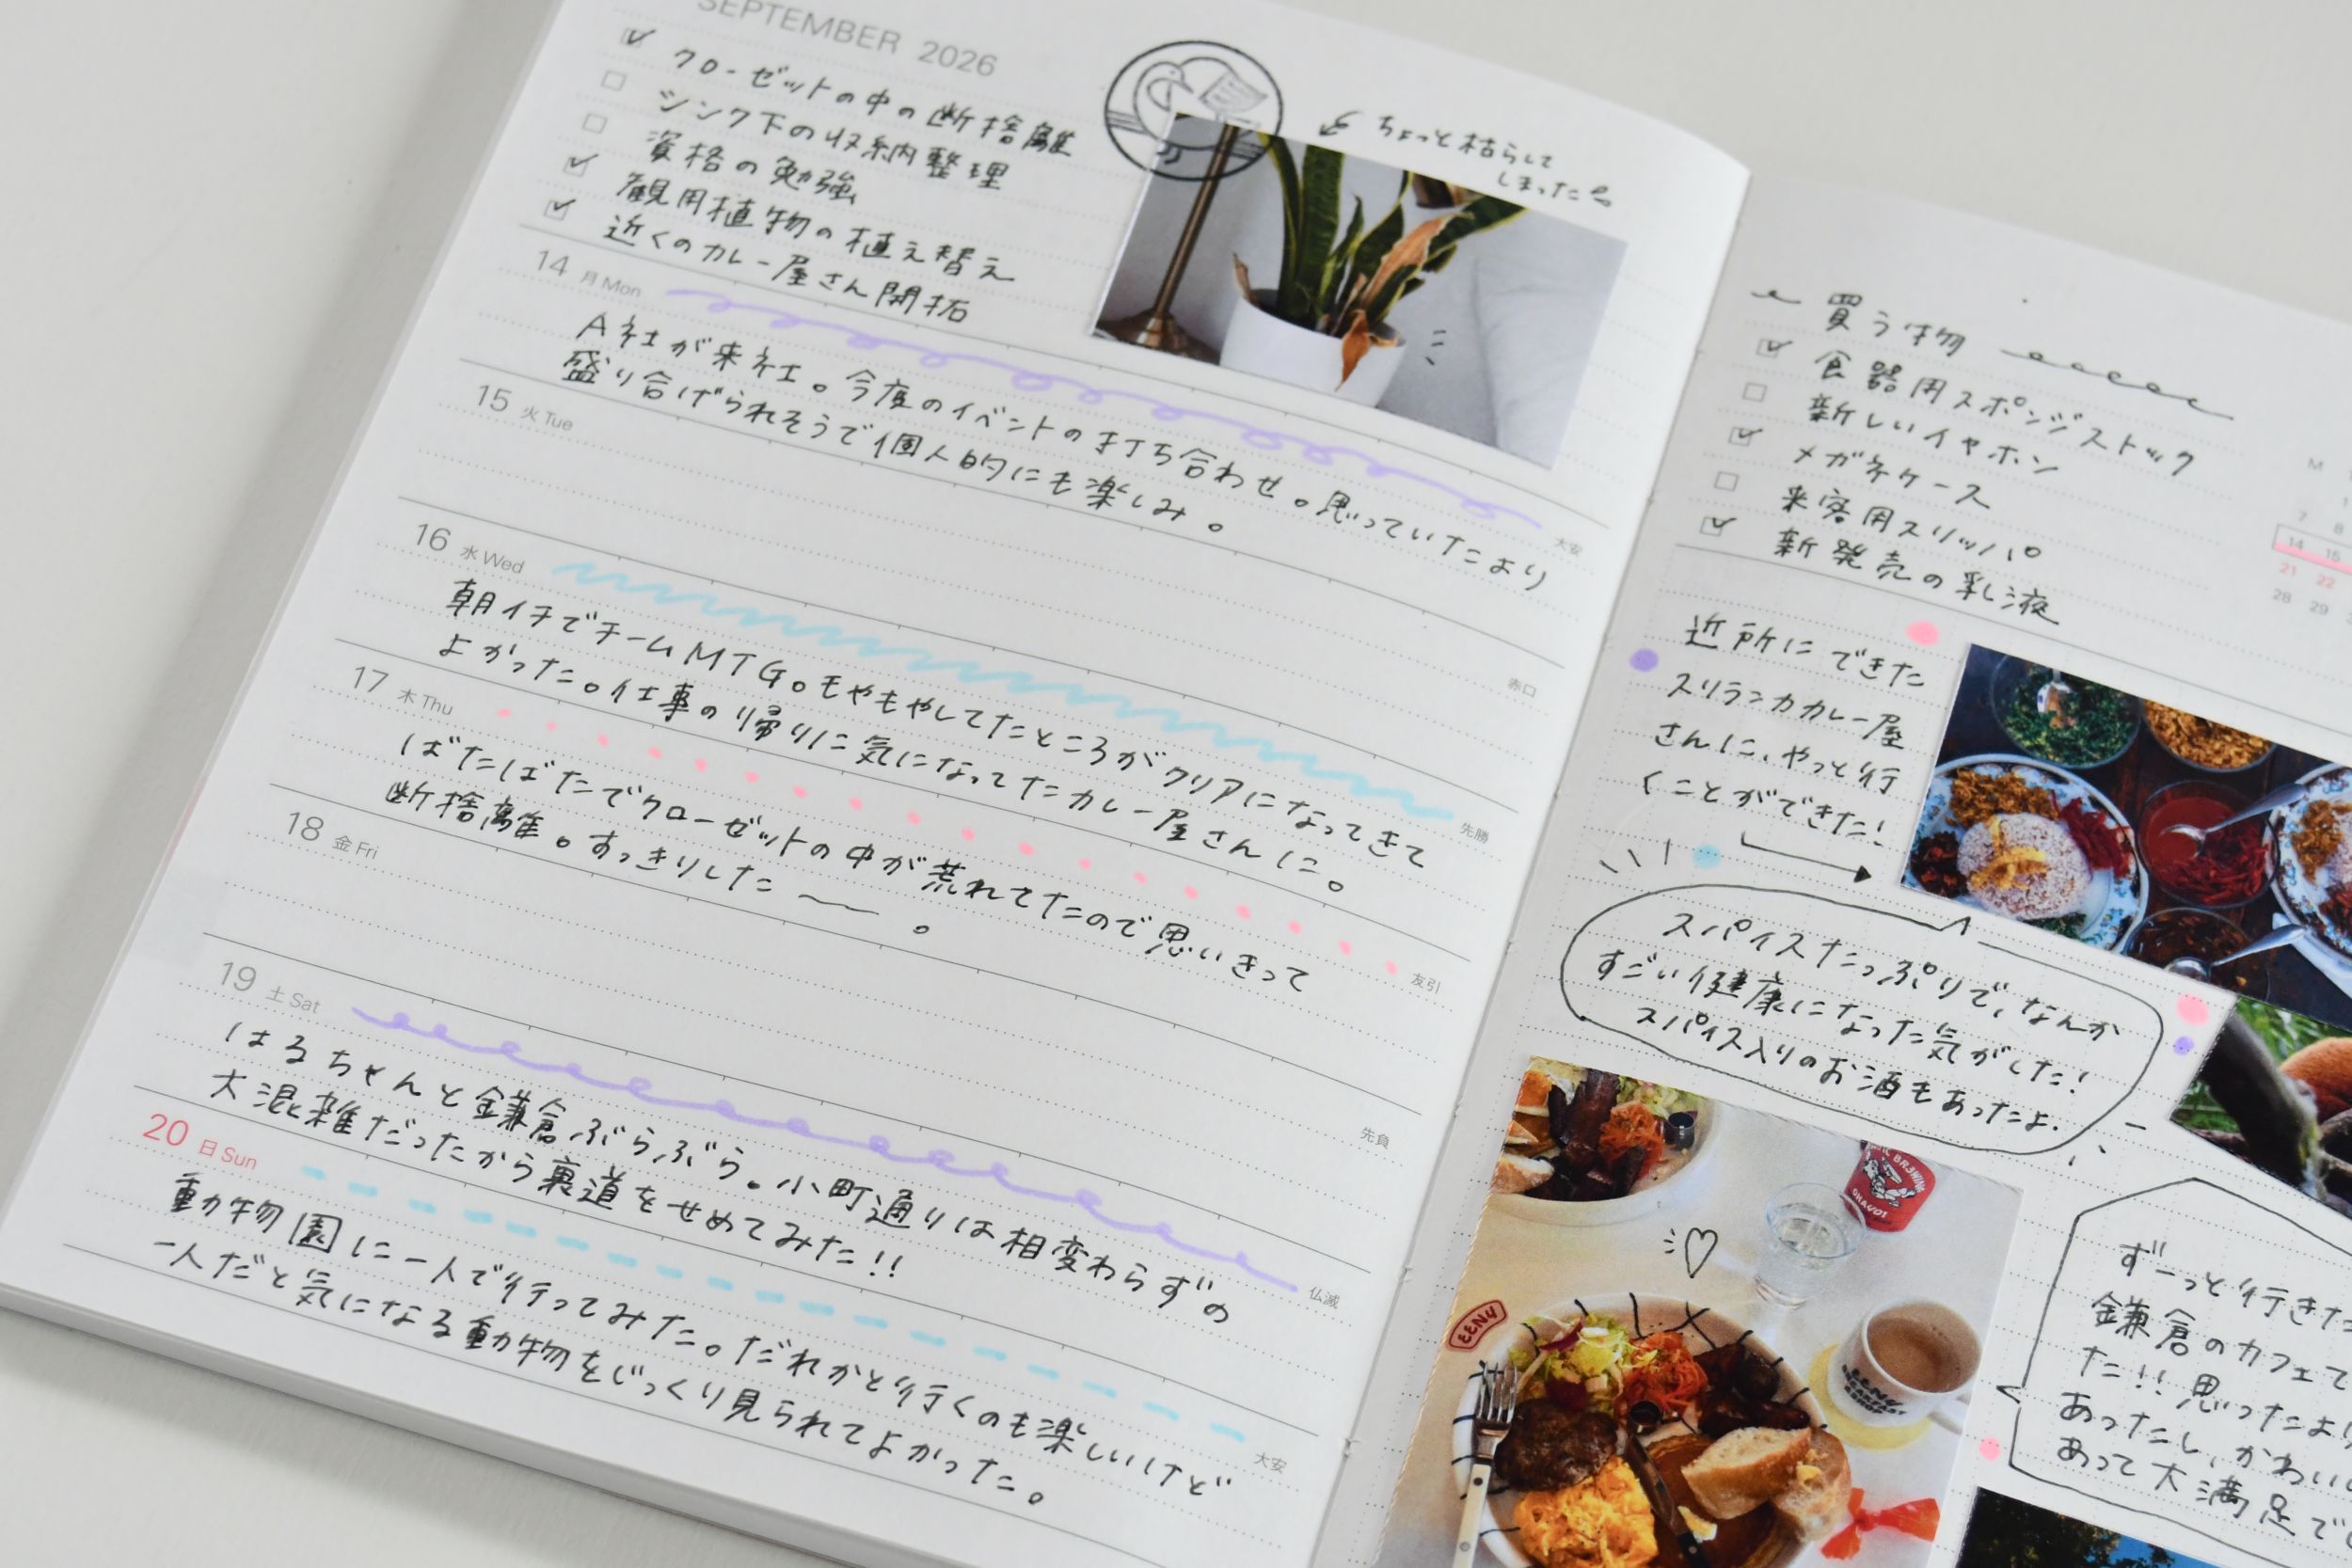 SEPTEMBER 2026
クローゼットの中の断捨離
シンク下の収納整理
資格の勉強
観用植物の植え替え
近くのカレー屋さん開拓
ちょっと枯らして
しまった
14 月 Mon
A社が来社。今度のイベントの打ち合わせ。思っていたより
盛り合げられそうで個人的にも楽しみ。
大安
15 火 Tue
赤口
16 水 Wed
朝イチでチームMTG。もやもやしてたところがクリアになってきて
よかった。仕事の帰りに気になってたカレー屋さんに。
先勝
17 木 Thu
ばたばたでクローゼットの中が荒れてたので思いきって
断捨離。すっきりした〜。
友引
18 金 Fri
先負
19 土 Sat
はるちゃんと鎌倉ぶらぶら。小町通りは相変わらずの
大混雑だったから裏道をせめてみた!!
仏滅
20 日 Sun
動物園に一人で行ってみた。だれかと行くのも楽しいけど
一人だと気になる動物をじっくり見られてよかった。
大安
買う物
食器用スポンジストック
新しいイヤホン
メガネケース
来客用スリッパ
新発売の乳液
M
7 8
14 15
21 22
28 29
近所にできた
スリランカカレー屋
さんに、やっと行
くことができた!
スパイスたっぷりで、なんか
すごい健康になった気がした!
スパイス入りのお酒もあったよ.
EENY
ずーっと行きた
鎌倉のカフェで
た!!思ったより
あったし、かわいい
あって大満足で